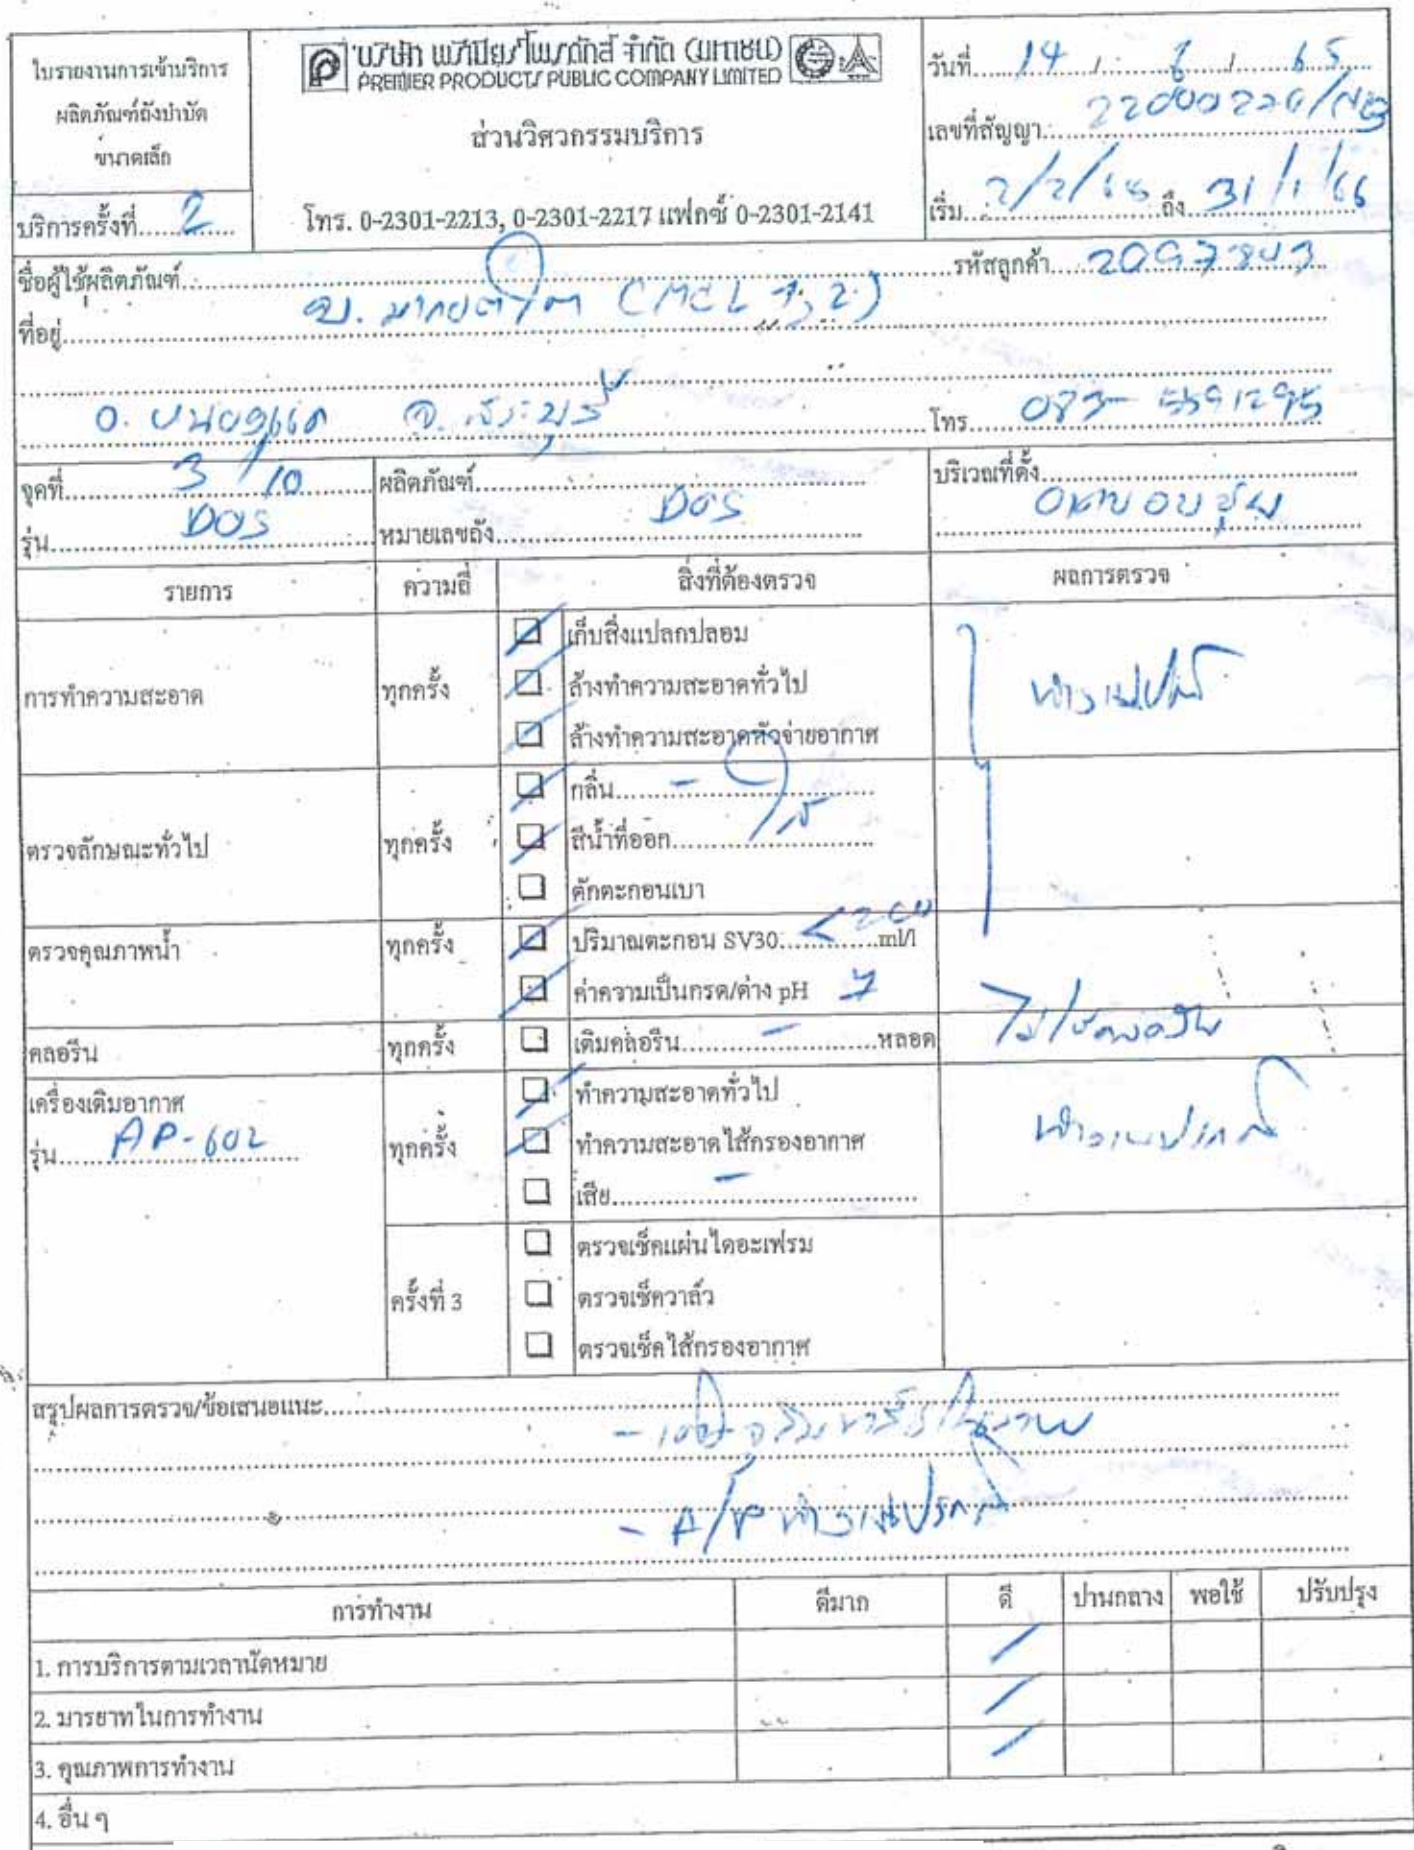 ใบรายงานการเข้าบริการ
ผลิตภัณฑ์ถังบำบัด
ขนาดเล็ก
บริการครั้งที่.....2
บริษัท พรีเมียร์โพรดักส์ จำกัด (มหาชน)
PREMIER PRODUCTS PUBLIC COMPANY LIMITED
ส่วนวิศวกรรมบริการ
โทร. 0-2301-2213, 0-2301-2217 แฟกซ์ 0-2301-2141
วันที่ 14 / 6 / 65
เลขที่สัญญา
เริ่ม 2/2/65 ถึง 31/1/66
ชื่อผู้ใช้ผลิตภัณฑ์ รหัสลูกค้า
ที่อยู่
(MCL 1, 2)
จ. สระบุรี โทร. 083-5591295
จุดที่ 3/10 ผลิตภัณฑ์ บริเวณที่ตั้ง
รุ่น DOS หมายเลขถัง DOS
รายการ ความถี่ สิ่งที่ต้องตรวจ ผลการตรวจ
การทำความสะอาด ทุกครั้ง เก็บสิ่งแปลกปลอม
ล้างทำความสะอาดทั่วไป ทำงานปกติ
ล้างทำความสะอาดหัวจ่ายอากาศ
ตรวจลักษณะทั่วไป ทุกครั้ง กลิ่น -
สีน้ำที่ออก ใส
ตักตะกอนเบา
ตรวจคุณภาพน้ำ ทุกครั้ง ปริมาณตะกอน SV30 <200 ml/l
ค่าความเป็นกรด/ด่าง pH 7
คลอรีน ทุกครั้ง เติมคลอรีน - หลอด ไม่ใช้คลอรีน
เครื่องเติมอากาศ ทุกครั้ง ทำความสะอาดทั่วไป
รุ่น AP-602 ทำความสะอาดไส้กรองอากาศ ทำงานปกติ
เสีย -
ครั้งที่ 3 ตรวจเช็คแผ่นไดอะเฟรม
ตรวจเช็ควาล์ว
ตรวจเช็คไส้กรองอากาศ
สรุปผลการตรวจ/ข้อเสนอแนะ
- A/P ทำงานปกติ
การทำงาน ดีมาก ดี ปานกลาง พอใช้ ปรับปรุง
1. การบริการตามเวลานัดหมาย /
2. มารยาทในการทำงาน /
3. คุณภาพการทำงาน /
4. อื่น ๆ